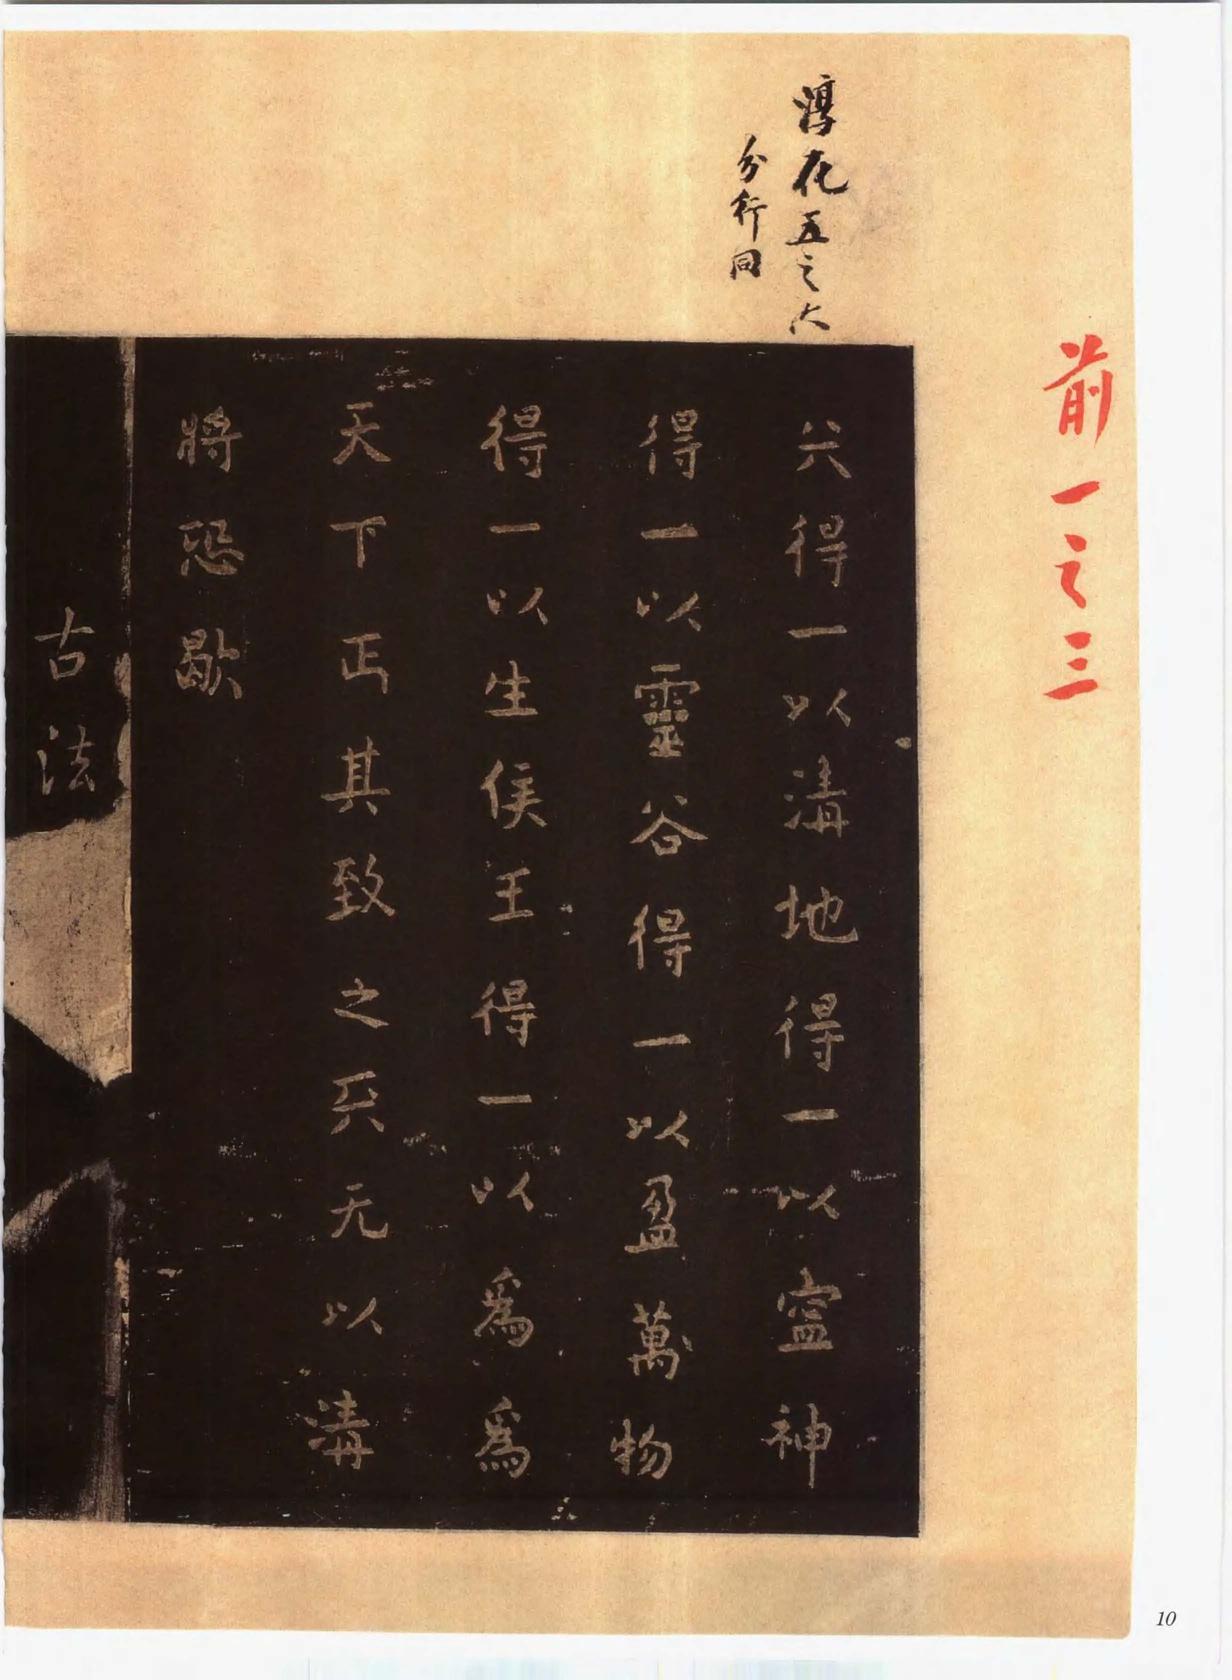 前一之三
淳化五之六
分行同
天得一以清地得一以寍神
得一以靈谷得一以盈萬物
得一以生侯王得一以爲爲
天下正其致之天无以清
將恐歇
古法
10